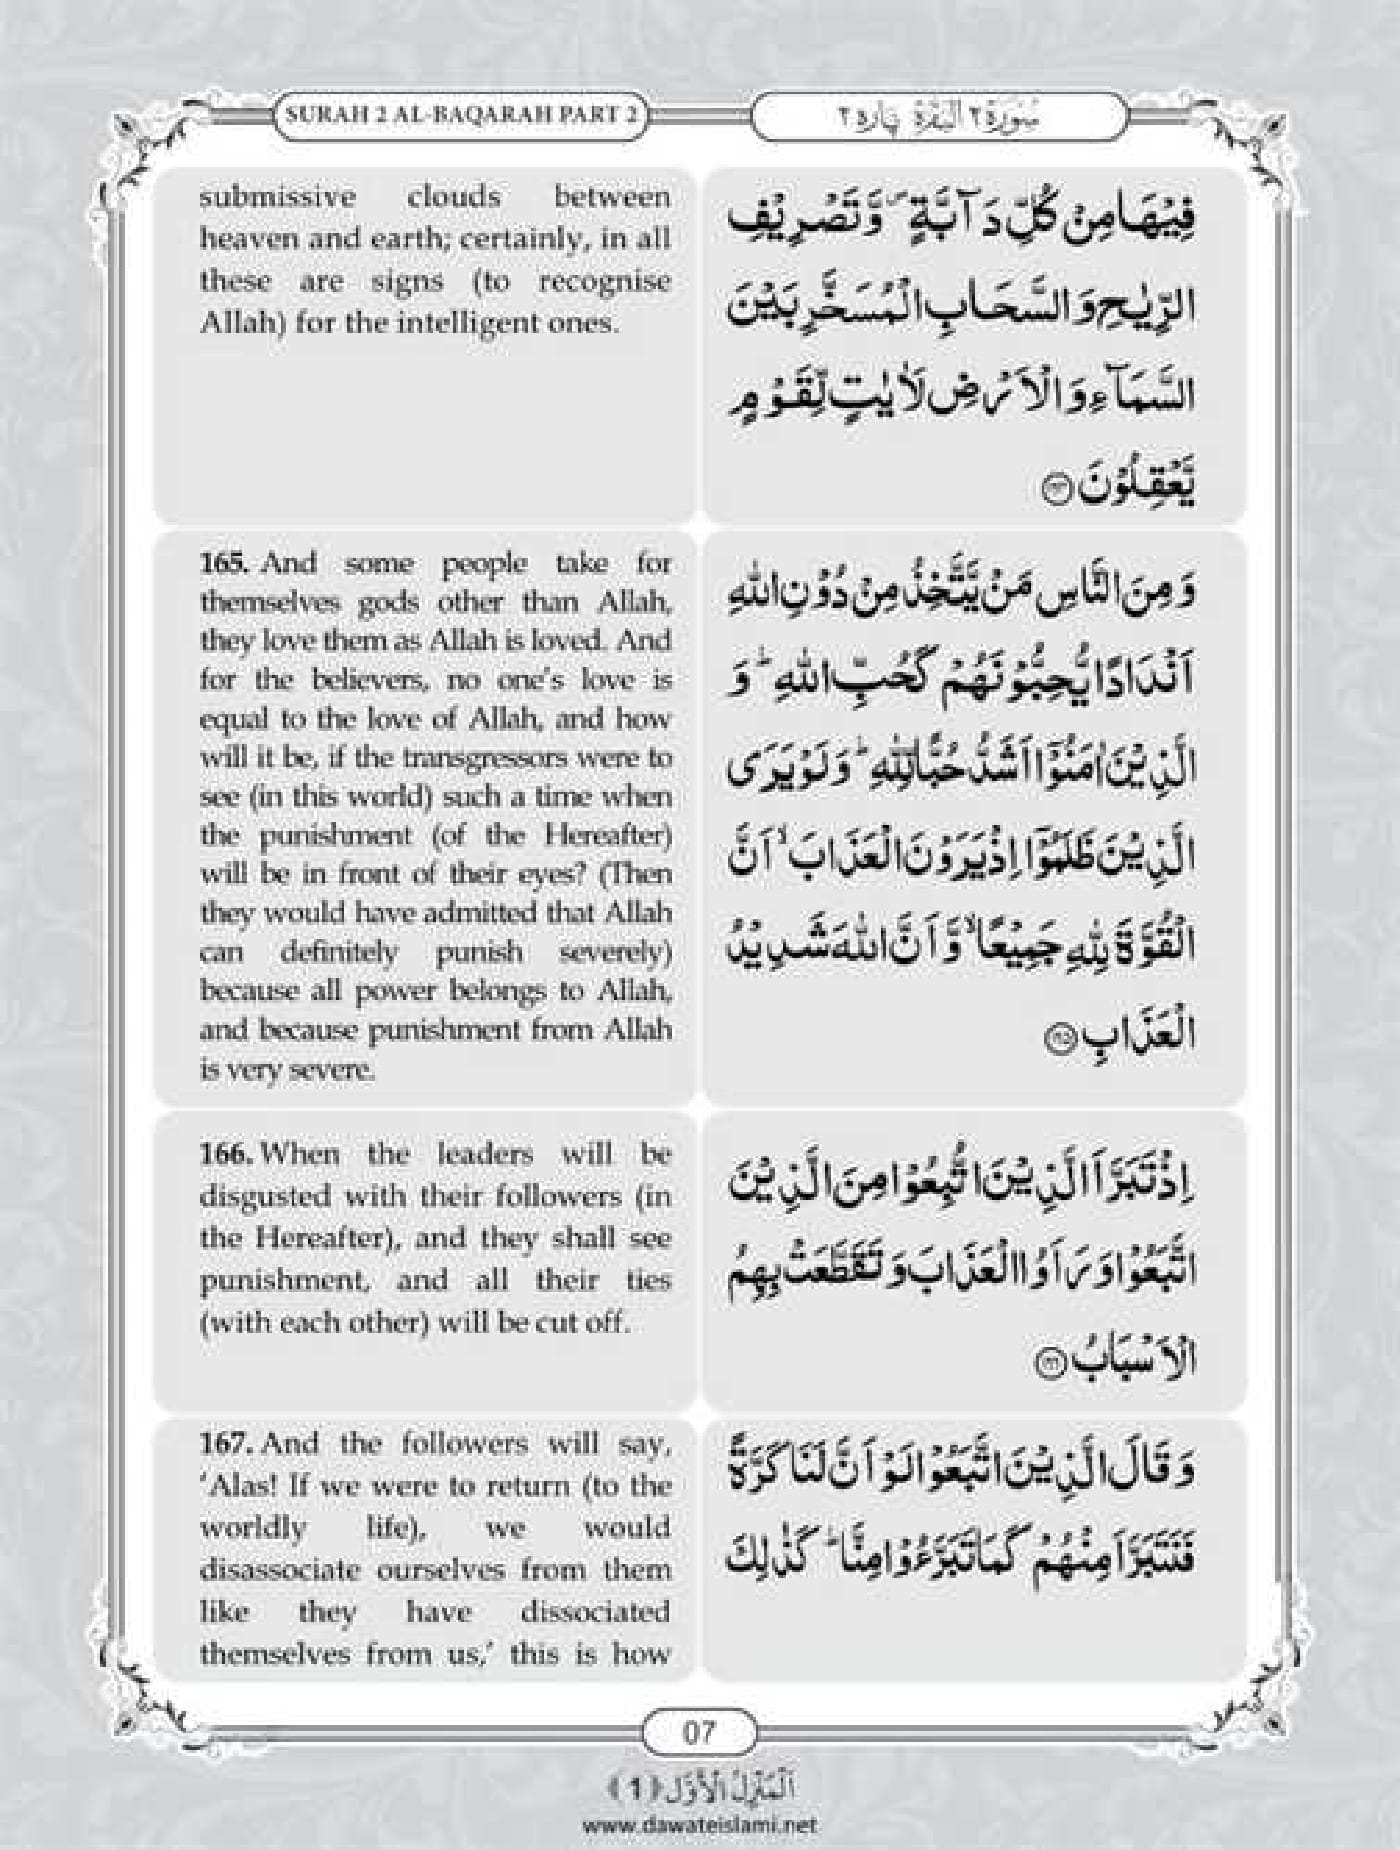 SURAH 2 AL-BAQARAH PART 2
سُوْرَةُ ٢ اَلْبَقَرَة پارہ ٢
submissive clouds between
heaven and earth; certainly, in all
these are signs (to recognise
Allah) for the intelligent ones.
فِيْهَا مِنْ كُلِّ دَآبَّةٍ ۪ وَّ تَصْرِيْفِ
الرِّيٰحِ وَ السَّحَابِ الْمُسَخَّرِ بَيْنَ
السَّمَآءِ وَ الْاَرْضِ لَاٰيٰتٍ لِّقَوْمٍ
يَّعْقِلُوْنَ ﴿۱۶۴﴾
165. And some people take for
themselves gods other than Allah,
they love them as Allah is loved. And
for the believers, no one's love is
equal to the love of Allah, and how
will it be, if the transgressors were to
see (in this world) such a time when
the punishment (of the Hereafter)
will be in front of their eyes? (Then
they would have admitted that Allah
can definitely punish severely)
because all power belongs to Allah,
and because punishment from Allah
is very severe.
وَ مِنَ النَّاسِ مَنْ يَّتَّخِذُ مِنْ دُوْنِ اللّٰهِ
اَنْدَادًا يُّحِبُّوْنَهُمْ كَحُبِّ اللّٰهِ ؕ وَ
الَّذِيْنَ اٰمَنُوْۤا اَشَدُّ حُبًّا لِّلّٰهِ ؕ وَ لَوْ يَرَى
الَّذِيْنَ ظَلَمُوْۤا اِذْ يَرَوْنَ الْعَذَابَ ۙ اَنَّ
الْقُوَّةَ لِلّٰهِ جَمِيْعًا ۙ وَّ اَنَّ اللّٰهَ شَدِيْدُ
الْعَذَابِ ﴿۱۶۵﴾
166. When the leaders will be
disgusted with their followers (in
the Hereafter), and they shall see
punishment, and all their ties
(with each other) will be cut off.
اِذْ تَبَرَّاَ الَّذِيْنَ اتُّبِعُوْا مِنَ الَّذِيْنَ
اتَّبَعُوْا وَ رَاَوُا الْعَذَابَ وَ تَقَطَّعَتْ بِهِمُ
الْاَسْبَابُ ﴿۱۶۶﴾
167. And the followers will say,
'Alas! If we were to return (to the
worldly life), we would
disassociate ourselves from them
like they have dissociated
themselves from us,' this is how
وَ قَالَ الَّذِيْنَ اتَّبَعُوْا لَوْ اَنَّ لَنَا كَرَّةً
فَنَتَبَرَّاَ مِنْهُمْ كَمَا تَبَرَّءُوْا مِنَّا ؕ كَذٰلِكَ
07
اَلْمَنْزِلُ الْاَوَّل ﴿1﴾
www.dawateislami.net